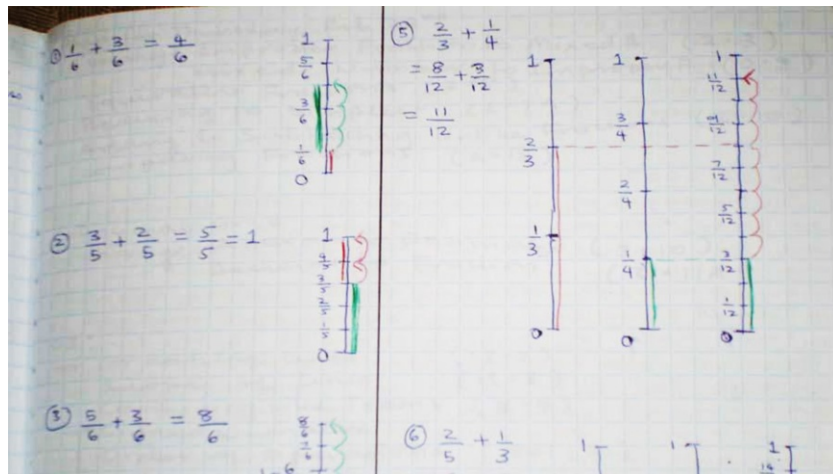 ① 1/6 + 3/6 = 4/6
1
5/6
3/6
1/6
0
② 3/5 + 2/5 = 5/5 = 1
1
0
③ 5/6 + 3/6 = 8/6
8/6
7/6
⑤ 2/3 + 1/4
= 8/12 + 3/12
= 11/12
1
2/3
1/3
0
1
3/4
2/4
1/4
0
1
11/12
9/12
7/12
5/12
3/12
1/12
0
⑥ 2/5 + 1/3
1
1
1